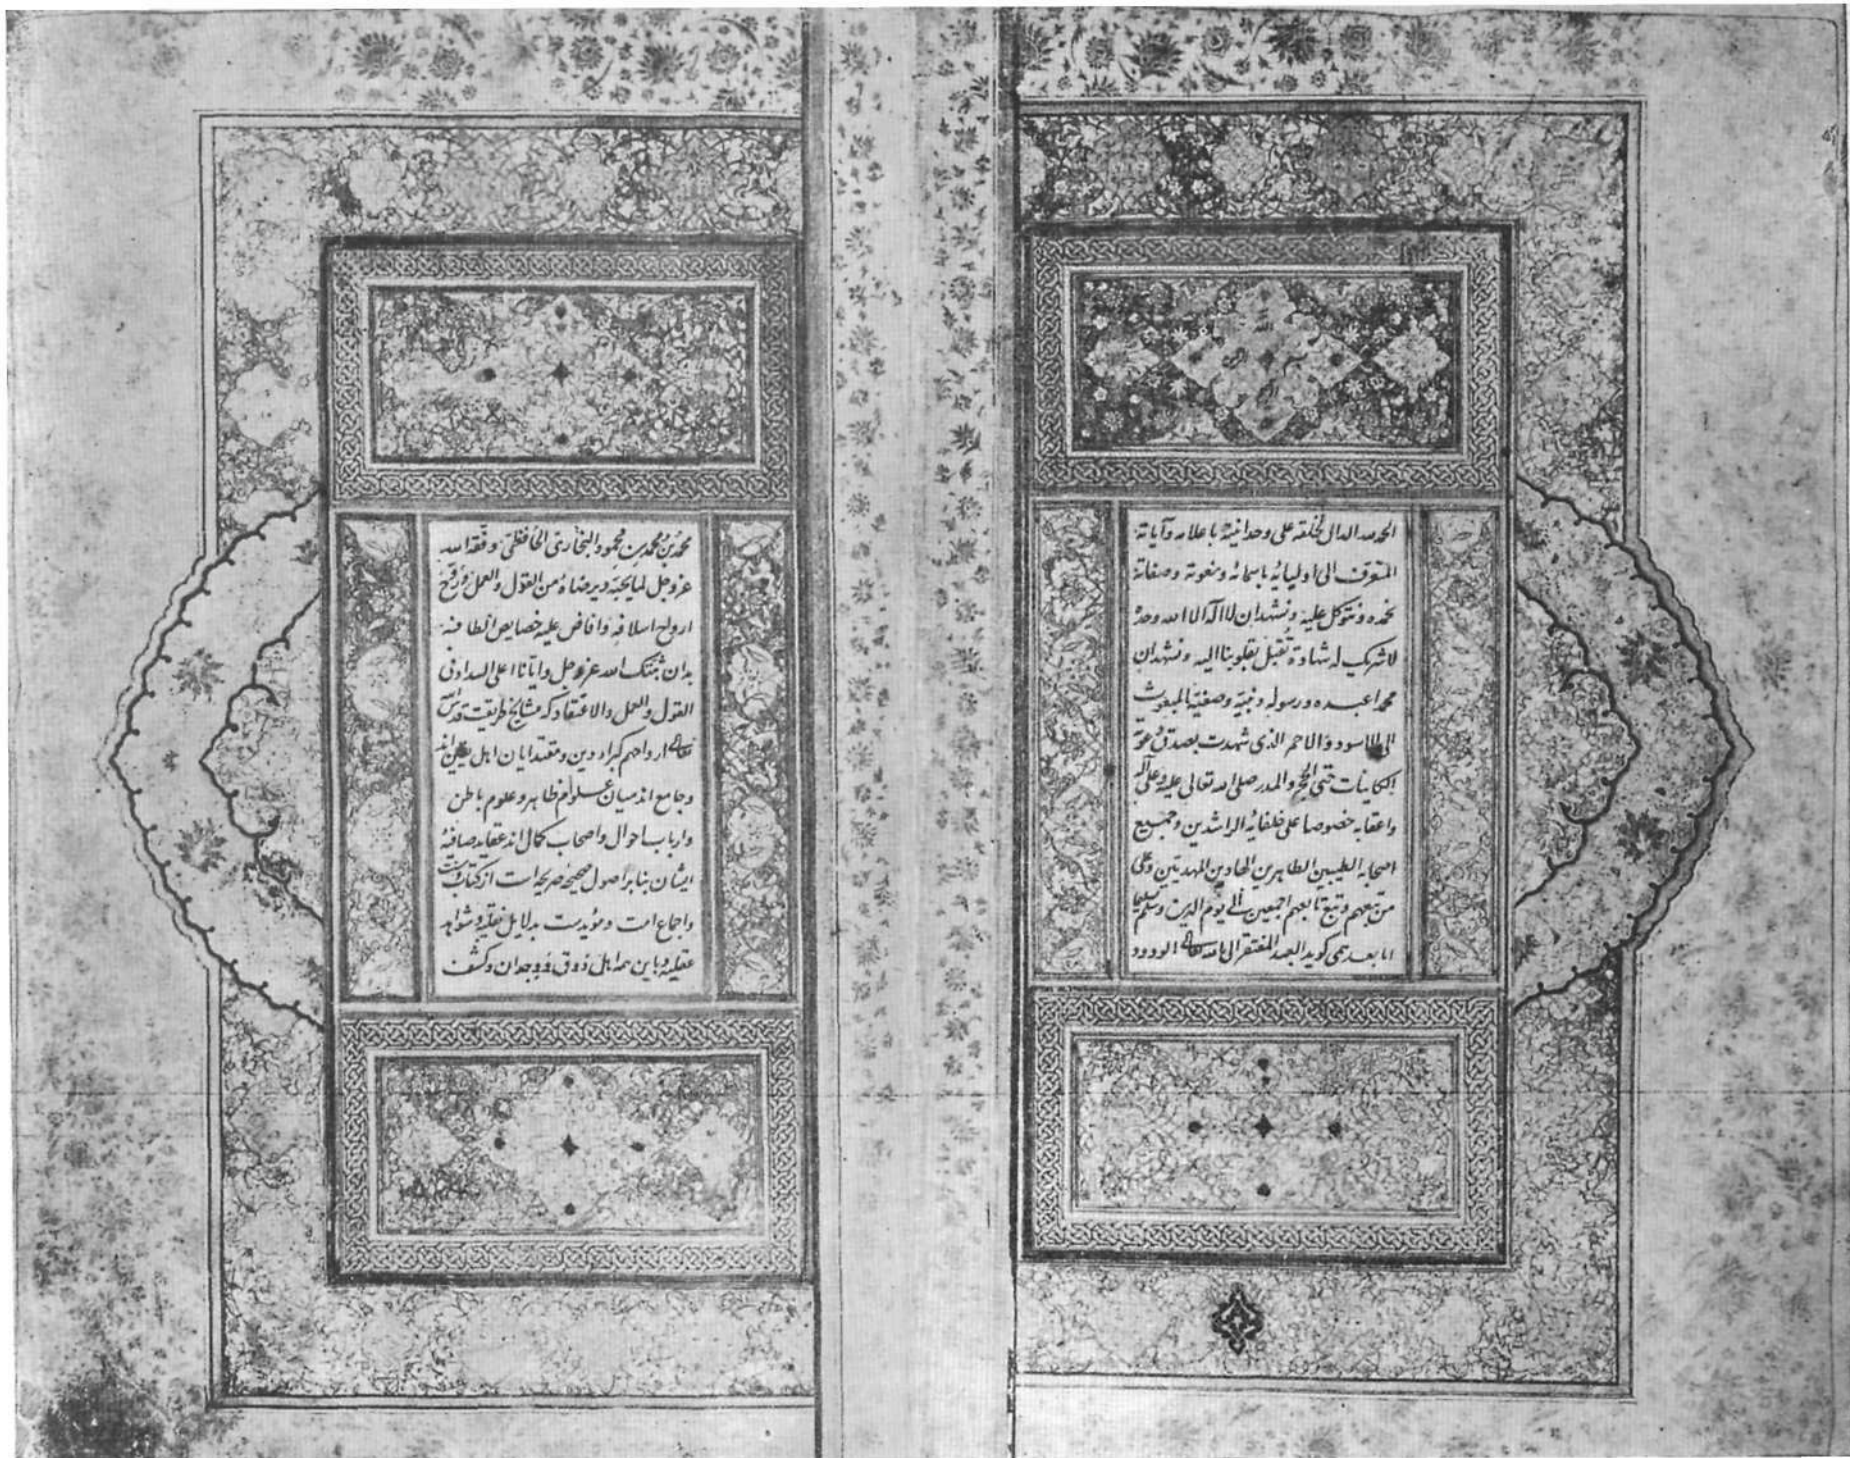 الحمد لله الدال لخلقه على وحدانیته باعلامه وآیاته
المتعرف الی اولیائه باسمائه ونعوته وصفاته
نحمده ونتوکل علیه ونشهد ان لا اله الا الله وحده
لا شریک له شهادة تقبل بقلوبنا الیه ونشهد ان
محمدا عبده ورسوله ونبیه وصفیه المبعوث
الی الاسود والاحمر الذی شهدت بصدق دعوته
الکاینات حتی الحجر والمدر صلی الله تعالی علیه وعلی آله
واعقابه خصوصا علی خلفائه الراشدین وجمیع
اصحابه الطیبین الطاهرین الهادین المهدیین وعلی
من تبعهم وتبع تابعهم اجمعین الی یوم الدین وسلم تسلیما
اما بعد همی کوید العبد المفتقر الی الله تعالی الودود
محمد بن محمد بن محمود البخاری الحافظی وفقه الله
عز وجل لما یحبه ویرضاه من القول والعمل وروح
ارواح اسلافه وافاض علیه خصایص الطافه
بدان ثبتک الله عز وجل وایانا علی السداد فی
القول والعمل والاعتقاد که مشایخ طریقت قدس الله
تعالی ارواحهم کبراء دین ومقتدایان اهل یقین اند
وجامع اند میان علوم ظاهر وعلوم باطن
وارباب احوال واصحاب کمال اند عقاید صافیهٔ
ایشان بنا بر اصول صحیحه صریحه است از کتاب وسنت
واجماع امت ومؤیدست بدلایل نقلیه وشواهد
عقلیه وبا این همه اهل ذوق ووجدان وکشف